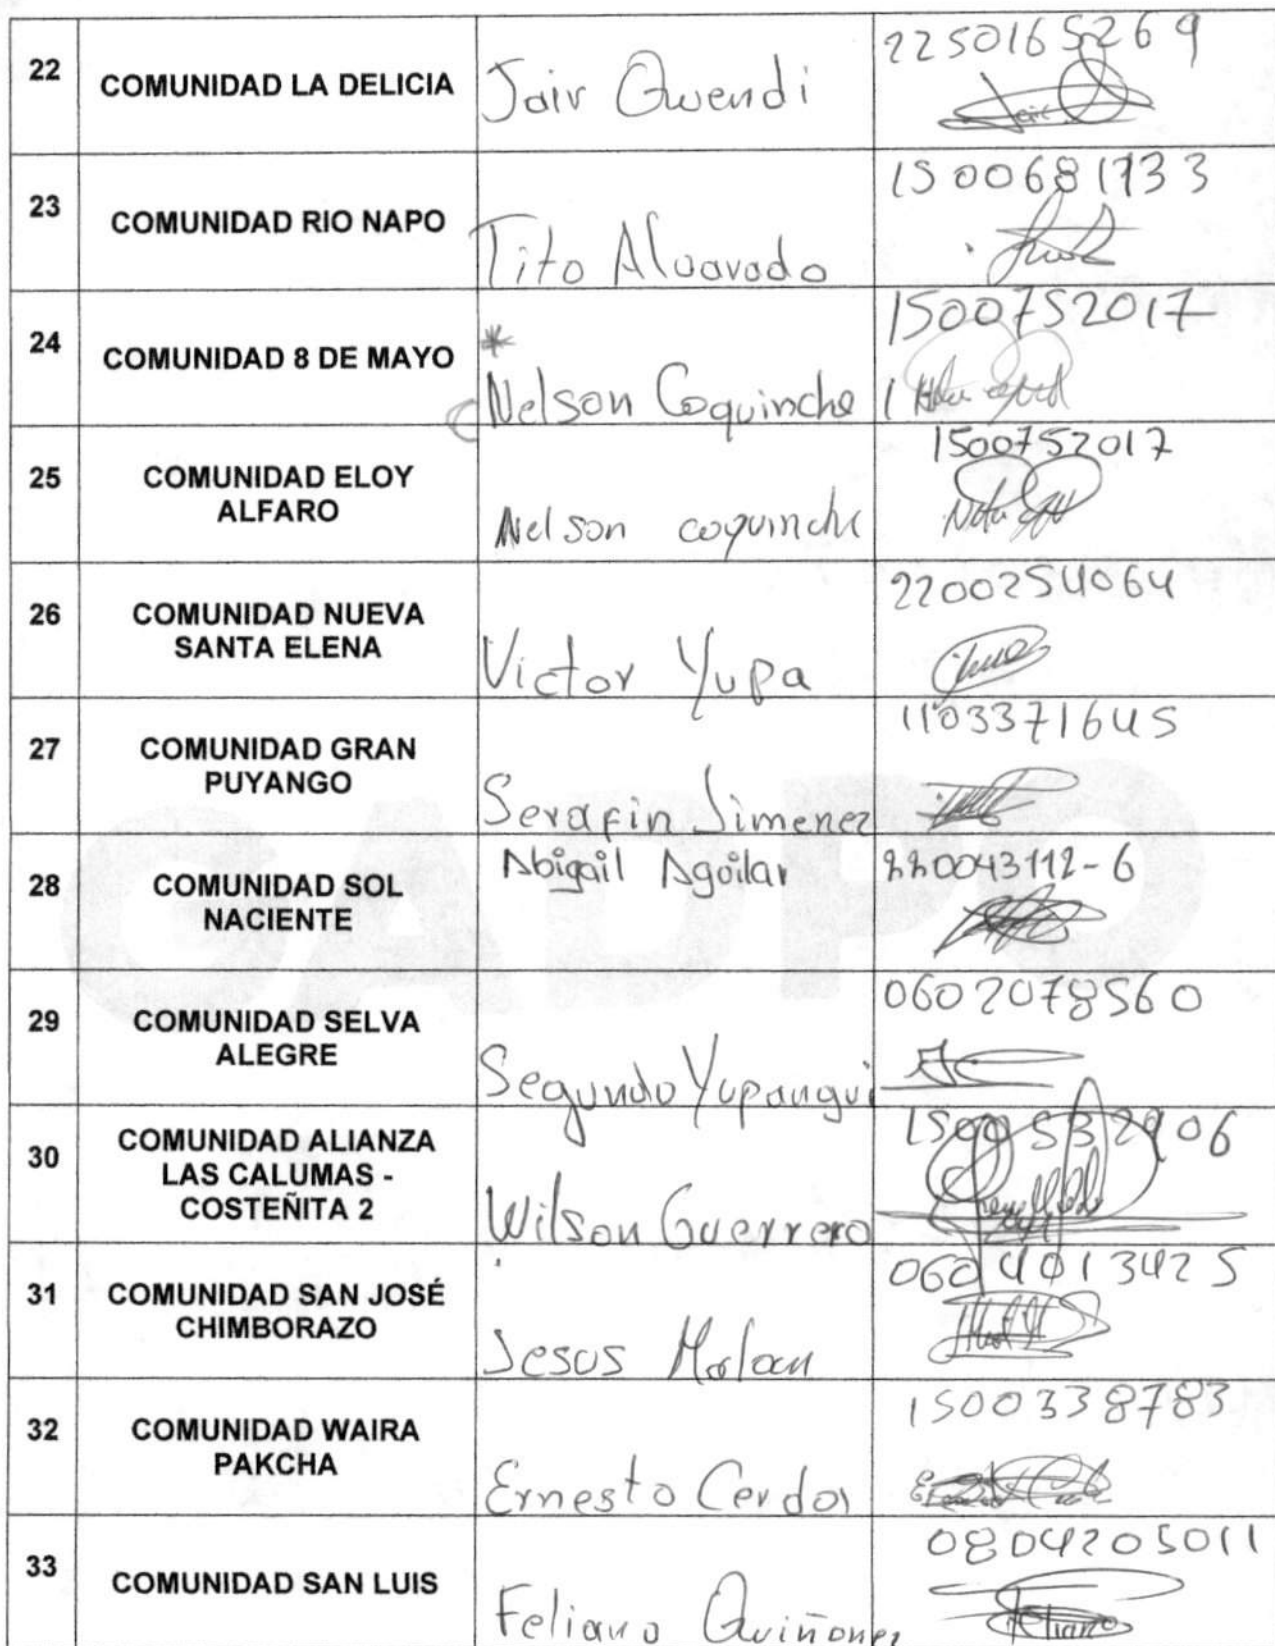 22 COMUNIDAD LA DELICIA Jair Gwendi 2250165269
23 COMUNIDAD RIO NAPO Tito Alvarado 1500681733
24 COMUNIDAD 8 DE MAYO * Nelson Coquinche 1500752017
25 COMUNIDAD ELOY ALFARO Nelson coquinche 1500752017
26 COMUNIDAD NUEVA SANTA ELENA Victor Yupa 2200254064
27 COMUNIDAD GRAN PUYANGO Serafin Jimenez 1103371645
28 COMUNIDAD SOL NACIENTE Abigail Aguilar 220043112-6
29 COMUNIDAD SELVA ALEGRE Segundo Yupangui 0602078560
30 COMUNIDAD ALIANZA LAS CALUMAS - COSTEÑITA 2 Wilson Guerrero
31 COMUNIDAD SAN JOSÉ CHIMBORAZO Jesus Malan 0604013425
32 COMUNIDAD WAIRA PAKCHA Ernesto Cerda 1500338783
33 COMUNIDAD SAN LUIS Feliano Quiñonez 0804205011
GADPO